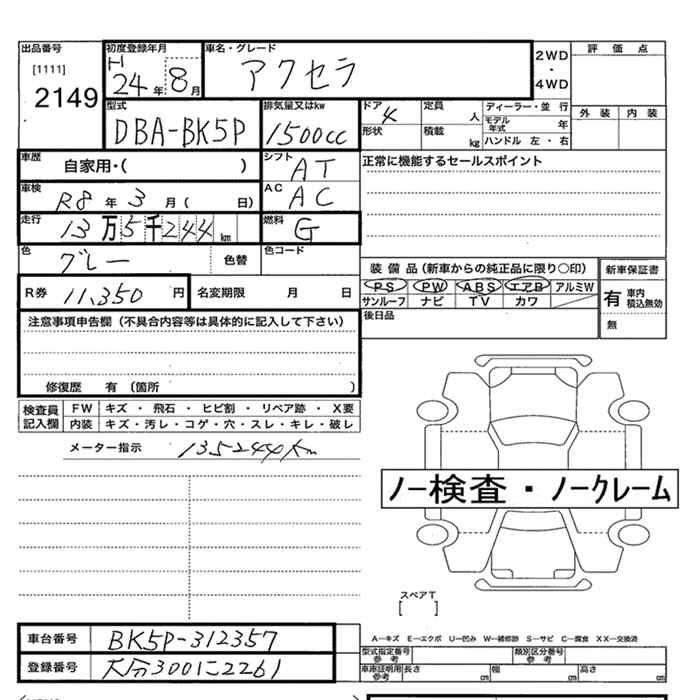 出品番号 初度登録年月 車名・グレード 評価点
[1111] H 2WD
2149 24年 8月 アクセラ ・ 4WD
型式 排気量又はkw ドア 4 定員 人 ディーラー・並行 外装 内装
DBA-BK5P 1500cc 形状 積載 kg モデル年式 年
ハンドル 左・右
車歴 自家用・( ) シフト AT 正常に機能するセールスポイント
車検 R8年 3月( 日) AC AC
走行 13万5千244km 燃料 G
色 グレー 色替 色コード
装備品(新車からの純正品に限り○印) 新車保証書
R券 11,350円 名変期限 月 日 PS PW ABS エアB アルミW 有 車内積込無効
サンルーフ ナビ TV カワ
注意事項申告欄(不具合内容等は具体的に記入して下さい) 後日品 無
修復歴 有(箇所 )
検査員記入欄 FW キズ・飛石・ヒビ割・リペア跡・X要
内装 キズ・汚レ・コゲ・穴・スレ・キレ・破レ
メーター指示 135244km
ノー検査・ノークレーム
スペアT
[ ]
A…キズ E…エクボ U…凹み W…補修跡 S…サビ C…腐食 XX…交換済
車台番号 BK5P-312357 型式指定番号 参考 類別区分番号 参考
登録番号 大分300に2261 車庫証明用 参考 長さ cm 幅 cm 高さ cm